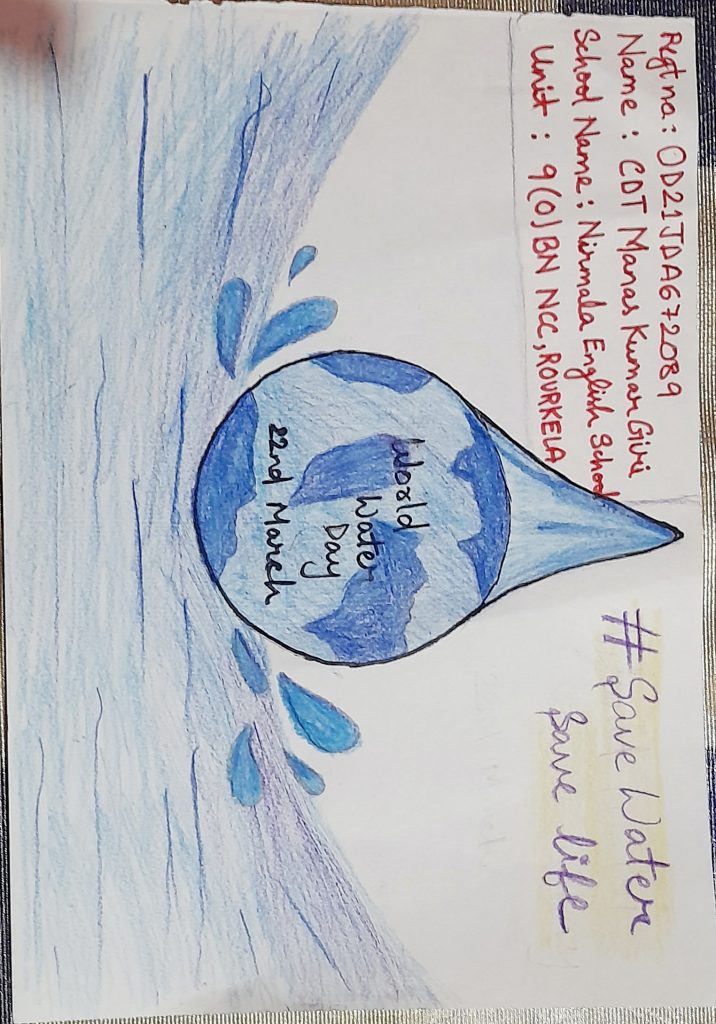 Regt no : OD21JDA672089
Name : CDT Manas Kumar Giri
School Name : Nirmala English School
Unit : 9(O) BN NCC, ROURKELA
#Save Water
Save life
World
Water
Day
22nd March